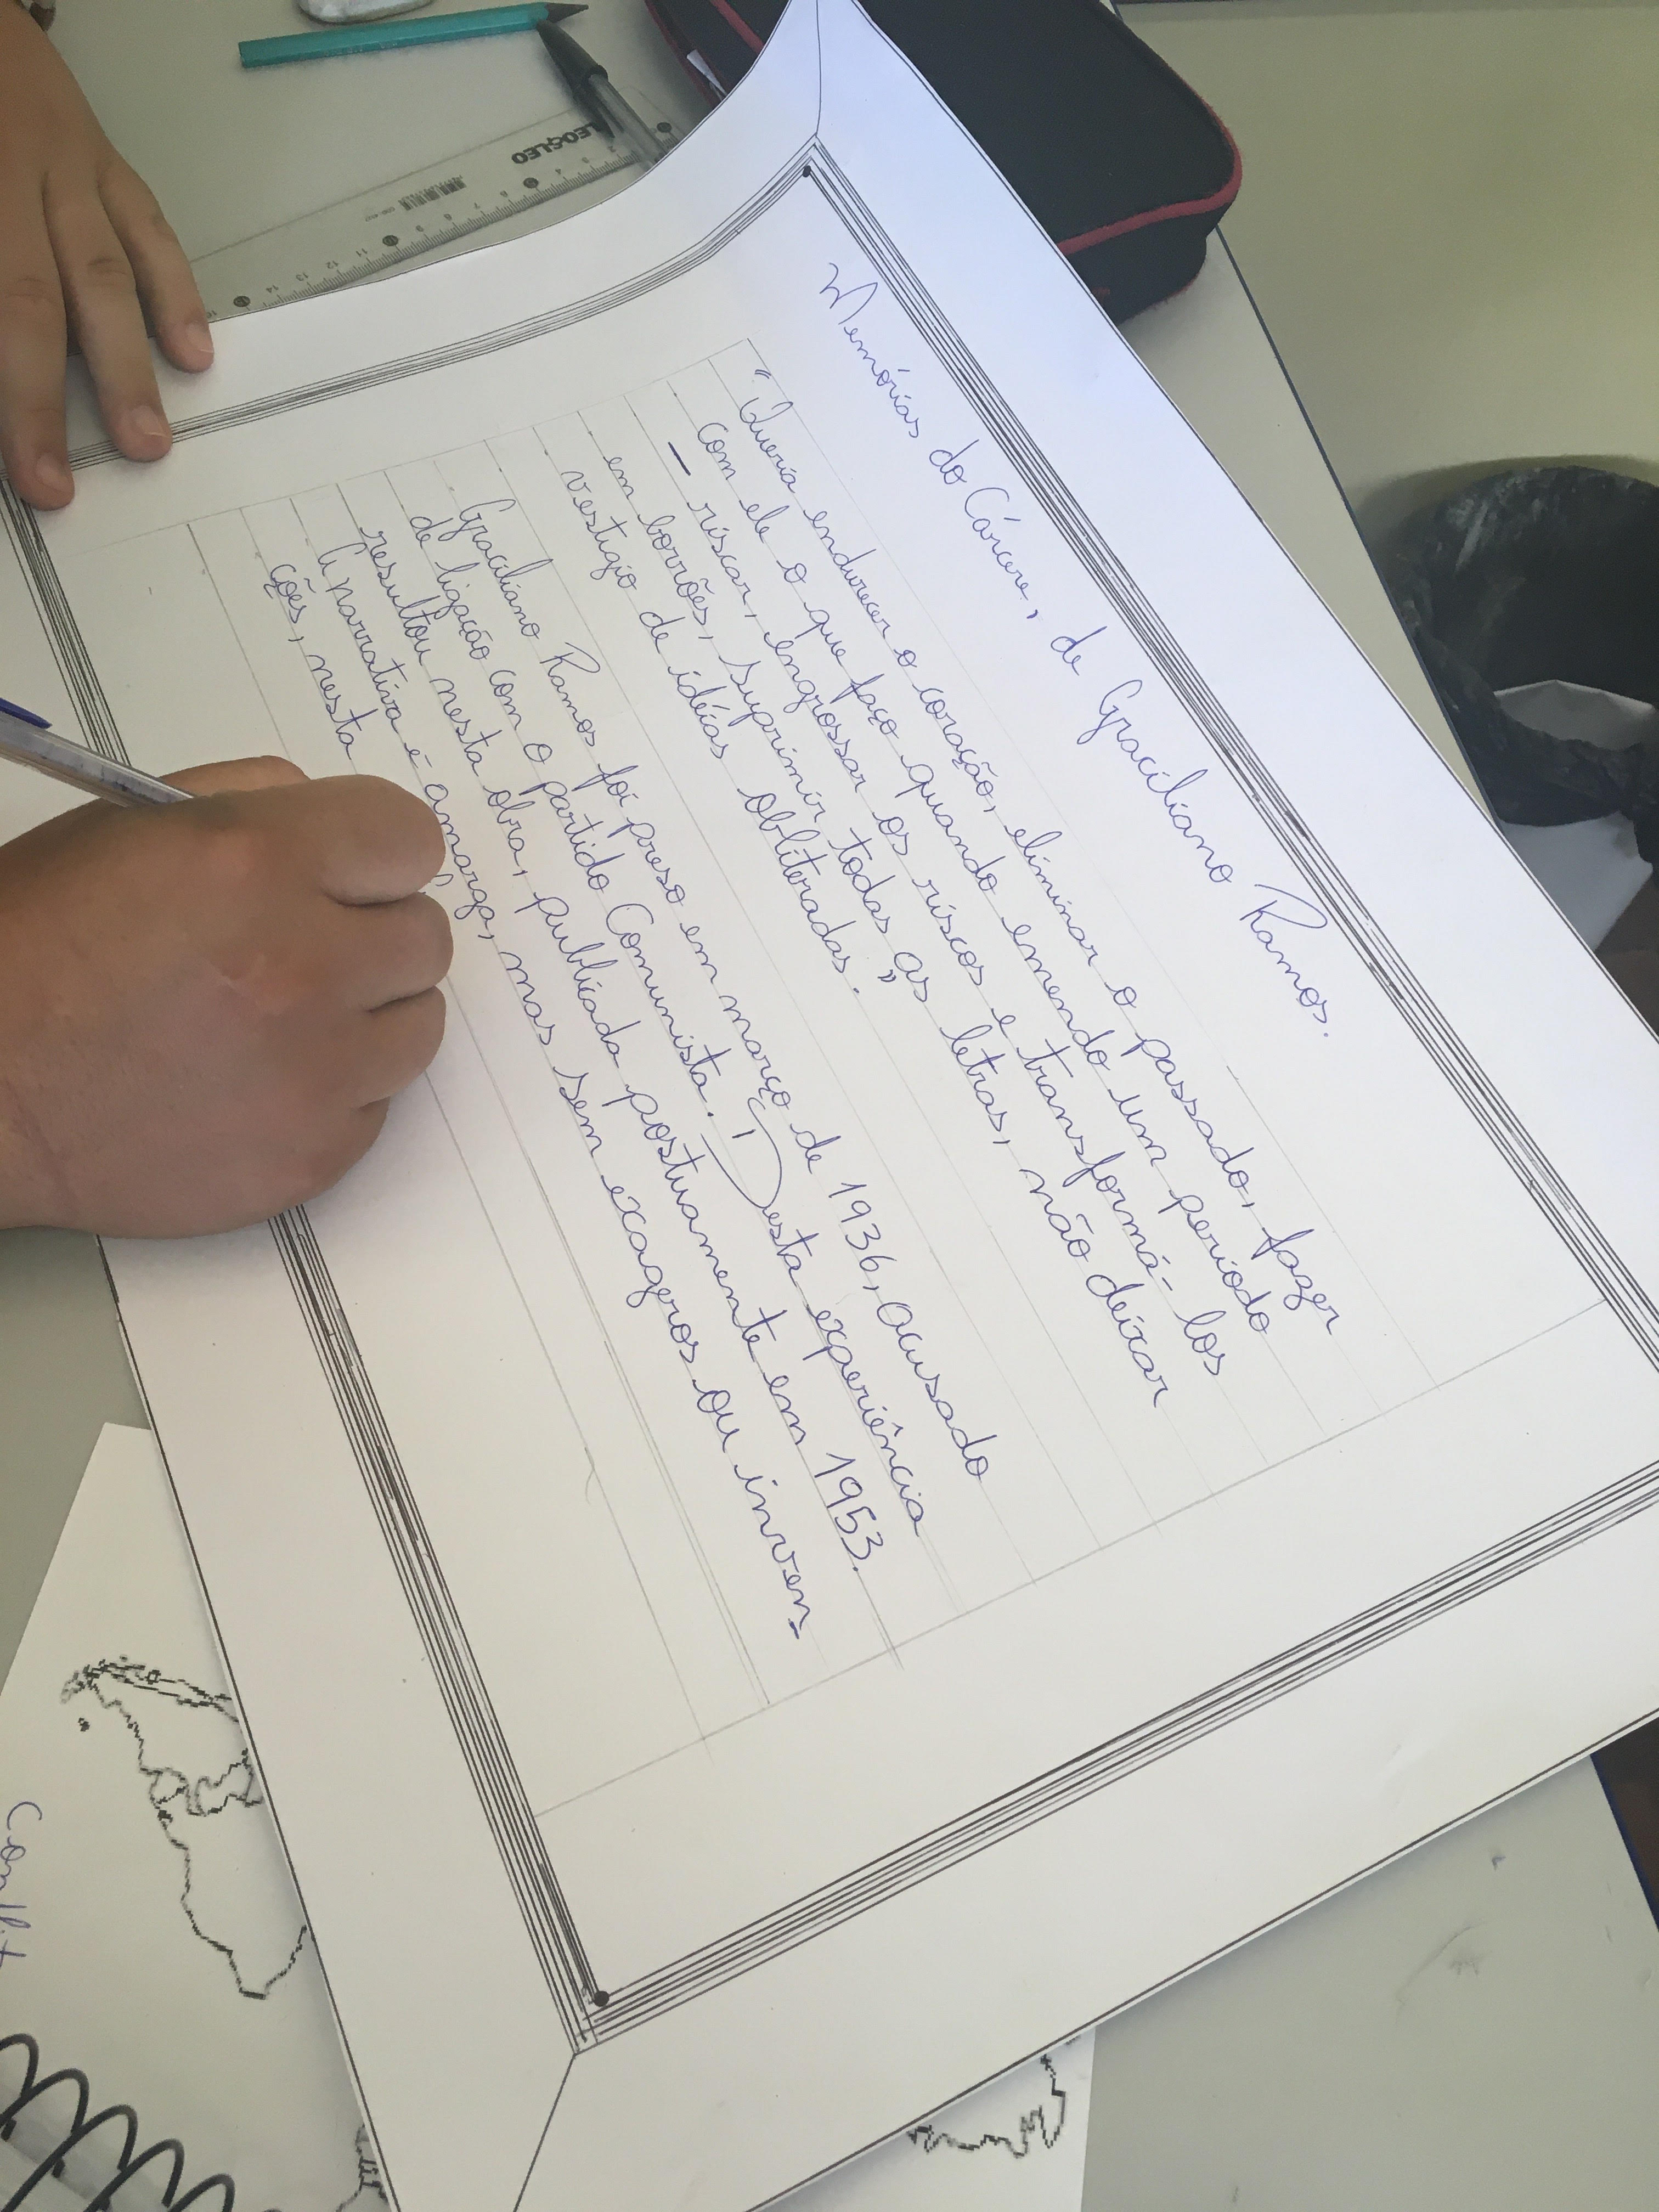 Memórias do Cárcere, de Graciliano Ramos.
"Queria endurecer o coração, eliminar o passado, fazer
com ele o que faço quando emendo um período
— riscar, engrossar os riscos e transformá-los
em borrões, suprimir todas as letras, não deixar
vestígio de idéias obliteradas."
Graciliano Ramos foi preso em março de 1936, acusado
de ligação com o partido Comunista. Desta experiência
resultou nesta obra, publicada postumamente em 1953.
A narrativa é amarga, mas sem exageros ou inven-
ções, nesta
LEO&LEO